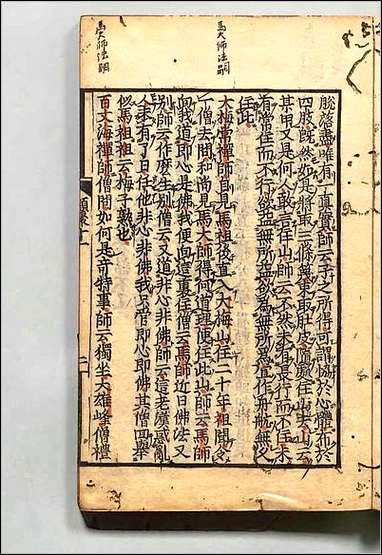 馬大師法嗣
馬大師法嗣
脫落盡唯有一真實師云子之所得可謂恊於心體布於
四肢既然如是將三條篾束取肚皮隨處住山去山云
某甲又是何人敢言住山師云不然未有常行而不住未
有常住而不行欲益無所益欲為無所為宜作舟航無久
住此
大梅常禪師自見馬祖後直入大梅山住二十年祖聞令
一僧去問和尚見馬大師得何道理便住此山師云馬師
向我道即心是佛我便向這裏住僧云馬師近日佛法又
別師云作麼生別僧云又道非心非佛師云這老漢惑亂
人未有了日任他非心非佛我只管即心即佛其僧回舉
似馬祖祖云梅子熟也
百丈海禪師僧問如何是奇特事師云獨坐大雄峰僧禮